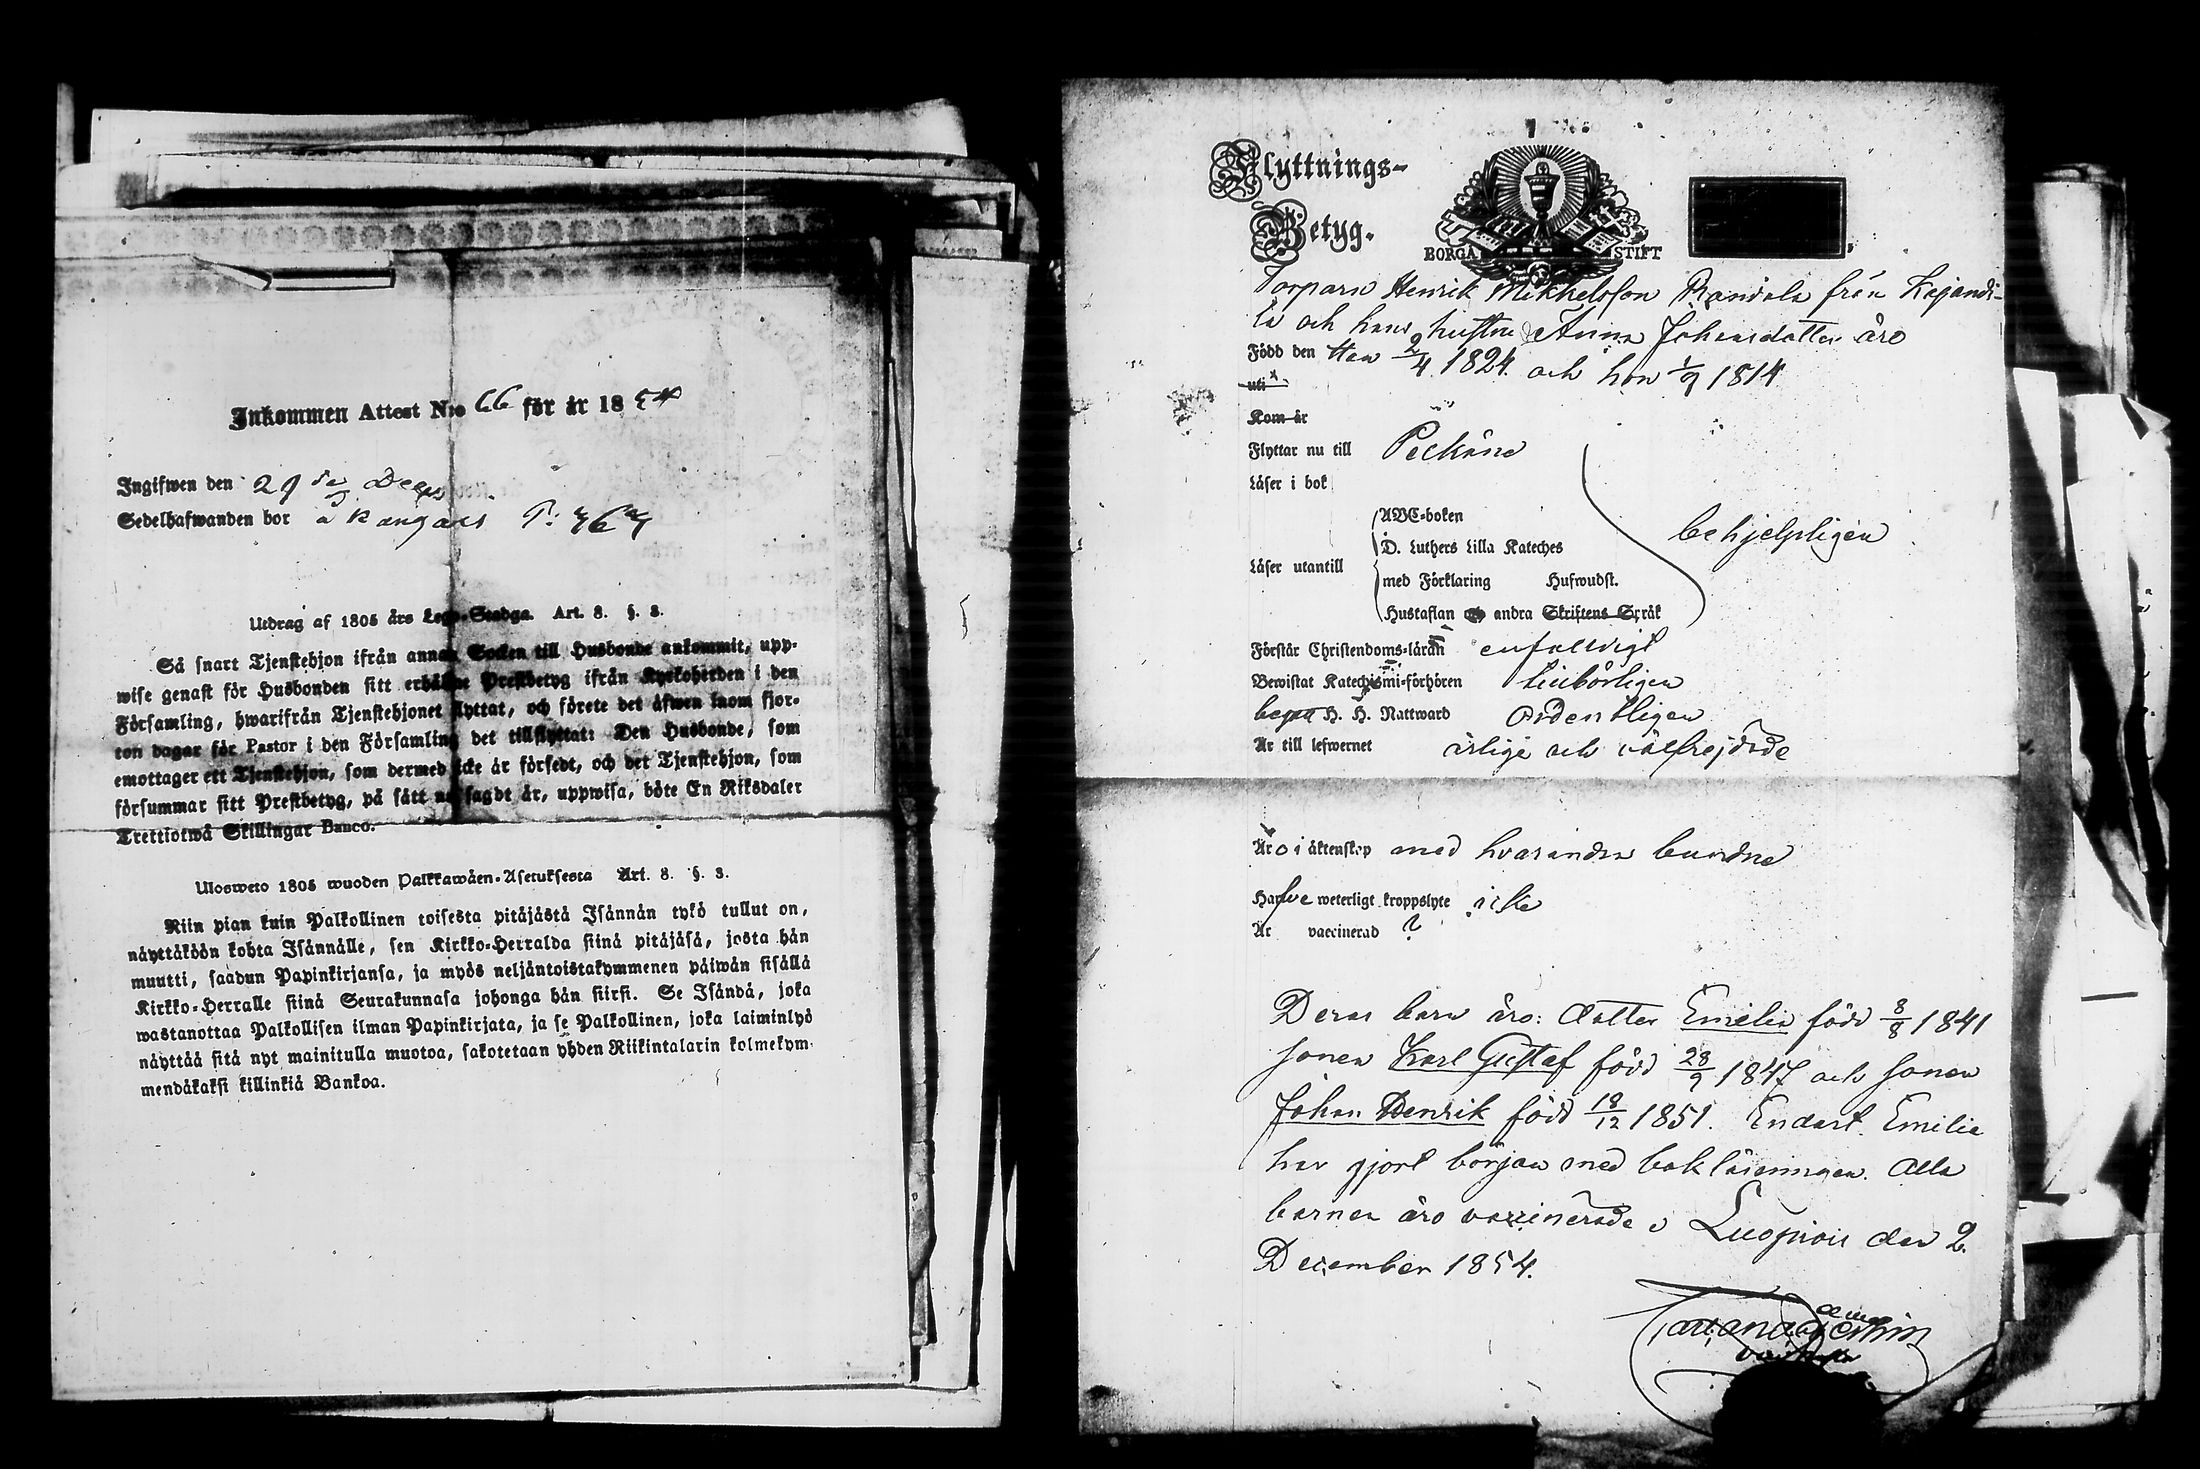 Inkommen Attest N:o 66 för år 1854
Ingifwen den 29 de Decem
Sedelhafwanden bor å Kangais P: 467
Utdrag af 1805 års Lego-Stadga. Art. 8. §. 3.
Så snart Tjenstehjon ifrån annan Socken till Husbonde ankommit, upp-
wise genast för Husbonden sitt erhållne Prestbetyg ifrån Kyrkoherden i den
Församling, hwarifrån Tjenstehjonet flyttat, och förete det äfwen inom fjor-
ton dagar för Pastor i den Församling det tillflyttat: Den Husbonde, som
emottager ett Tjenstehjon, som dermed icke är försedt, och det Tjenstehjon, som
försummar sitt Prestbetyg, på sätt nu sagdt är, uppwisa, böte En Riksdaler
Trettiotwå Skillingar Banco.
Ulosweto 1805 wuoden Palkkawäen-Asetuksesta Art. 8. §. 3.
Niin pian kuin Palkollinen toisesta pitäjästä Isännän tykö tullut on,
näyttäköön kohta Isännälle, sen Kirkko-Herralda siinä pitäjäsä, josta hän
muutti, saadun Papinkirjansa, ja myös neljäntoistakymmenen päiwän sisällä
Kirkko-Herralle siinä Seurakunnasa johonga hän siirsi. Se Isändä, joka
wastanottaa Palkollisen ilman Papinkirjata, ja se Palkollinen, joka laiminlyö
näyttää sitä nyt mainitulla muotoa, sakotetaan yhden Riikintalarin kolmekym-
mendäkaksi killinkiä Bankoa.
Flyttnings-
Betyg.
BORGÅ STIFT
Torparn Henrik Mikkelsson Randala från Kajandi-
la och hans hustru Anna Johansdotter äro
Född den Han 2/4 1824 och hon 1/9 1814
uti
Kom år
Flyttar nu till Pelkäne
Läser i bok
Läser utantill
ABC-boken
D. Luthers Lilla Kateches
med Förklaring Hufwudst.
Hustaflan och andra Skriftens Språk
behjelpligen
Förstår Christendoms-läran enfaldigt
Bewistat Katechismi-förhören tillbörligen
begått H. H. Nattward ordentligen
Är till lefwernet ärlige och välfrejdade
Äro i äktenskap med hvarandra bundne
Hafwe weterligt kroppslyte icke
Är vaccinerad ?
Deras barn äro: dotter Emilia född 8/8 1841
sonen Karl Gustaf född 28/9 1847 och sonen
Johan Henrik född 18/12 1851. Endast Emilia
har gjort början med bokläsningen. Alla
barnen äro vaccinerade. Luopiois den 2.
December 1854.